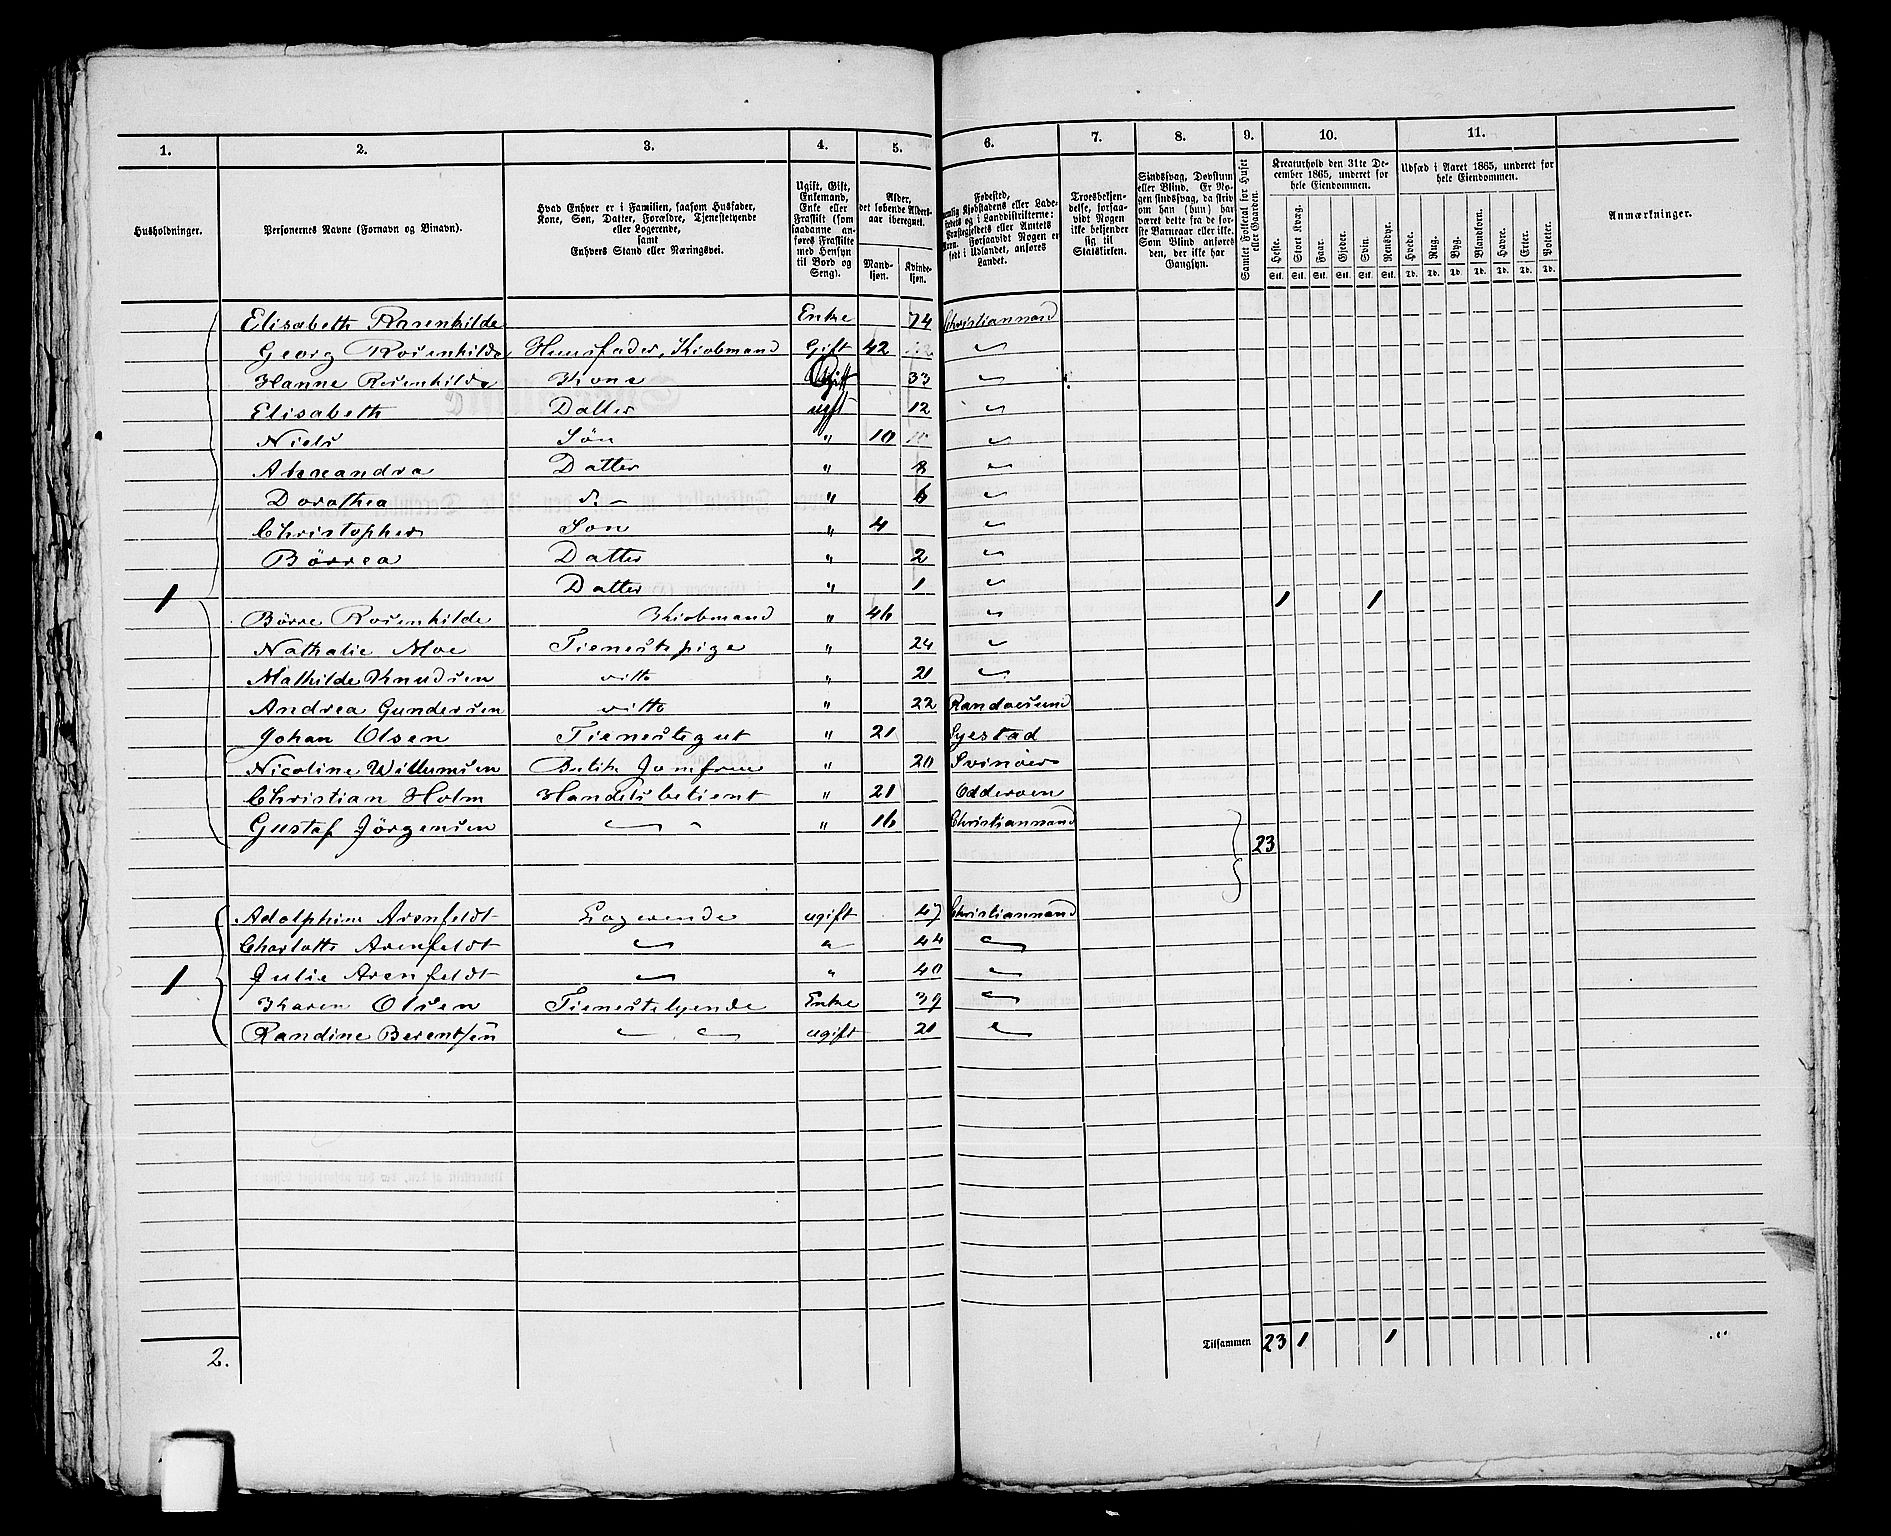 1. 2. 3. 4. 5. 6. 7. 8. 9. 10. 11.
Husholdninger.
Personernes Navne (Fornavn og Binavn).
Hvad Enhver er i Familien, saasom Husfader, Kone, Søn, Datter, Forældre, Tjenestetyende eller Logerende, samt Enhvers Stand eller Næringsvei.
Ugift, Gift, Enkemand, Enke eller Fraskilt (som saadanne anføres Fraskilte med Hensyn til Bord og Seng).
Alder, det løbende Aldersaar iberegnet.
Mandkjøn. Kvindekjøn.
Fødested,
Troesbekjendelse, forsaavidt Nogen ikke bekjender sig til Statskirken.
Sindssvag, Døvstum eller Blind. Er Nogen sindssvag, da skrives om han (hun) har været dette fra de første Barneaar eller ikke. Som Blind anføres den, der ikke har Gangsyn.
Samlet Folketal for Huset eller Gaarden.
Kreaturhold den 31te December 1865, underet for hele Eiendommen.
Heste. Stort Kvæg. Faar. Gjeder. Svin. Rensdyr.
Stk. Stk. Stk. Stk. Stk. Stk.
Udsæd i Aaret 1865, underet for hele Eiendommen.
Hvede. Rug. Byg. Blandkorn. Havre. Erter. Poteter.
Td. Td. Td. Td. Td. Td. Td.
Anmærkninger.
Elisabeth Rosenkilde Enke 74 Christiansand
Georg Rosenkilde Huusfader, Kiobmand Gift 42 "
Hanne Rosenkilde Kone Gift 33 "
Elisabeth Datter ugft 12 "
Niels Søn " 10 "
Alexandra Datter " 8 "
Dorothea d. " 6 "
Christopher Søn " 4 "
Börrea Datter " 2 "
1 Datter " 1 "
Börre Rosenkilde Kiobmand " 46 " 1 1
Nathalie Moe Tienestepige " 24 "
Mathilde Knudsen ditto " 21 "
Andrea Gundersen ditto " 22 Randoesund
Johan Olsen Tienestegut " 21 Syestad
Nicoline Willumsen Butik Jomfrue " 20 Svinöer
Christian Holm Handelsbetient " 21 Odderoen
Gustaf Jörgensen " " " 16 Christiansand
23
Adolphine Arenfeldt Logerende ugift 47 Christiansand
Charlotte Arenfeldt " " 44 "
1 Julie Arenfeldt " " 40 "
Karen Olsen Tienestetyende Enke 39 "
Randine Berentsen " " ugift 21 "
2. Tilsammen 23 1 1 "